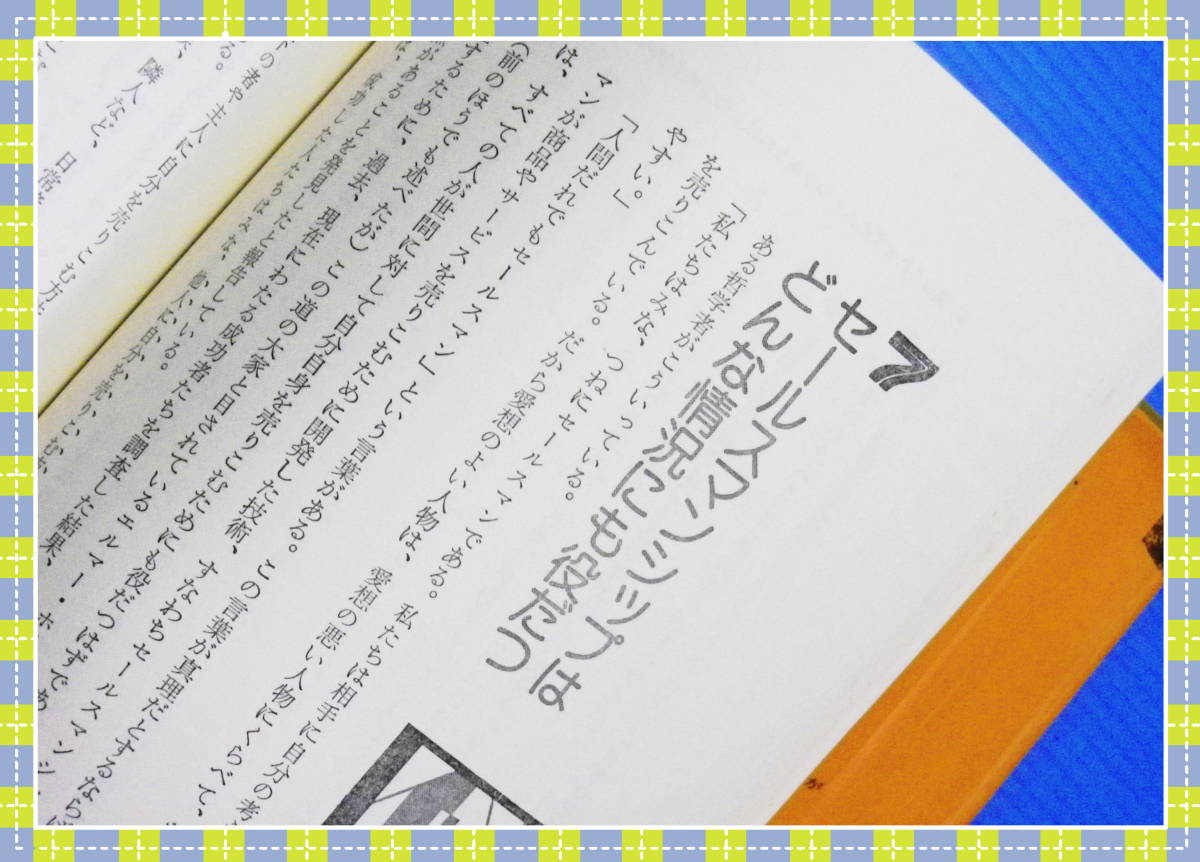 7
セールスマンシップは
どんな情況にも役だつ
ある哲学者がこういっている。
「私たちはみな、つねにセールスマンである。私たちは相手に自分の考
を売りこんでいる。だから愛想のよい人物は、愛想の悪い人物にくらべて、
やすい。」
「人間だれでもセールスマン」という言葉がある。この言葉が真理だとするならば
マンが商品やサービスを売りこむために開発した技術、すなわちセールスマンシ
は、すべての人が世間に対して自分自身を売りこむためにも役だつはずであ
(前のほうでも述べたが)この道の大家と目されているエルマー・ホ
するために、過去、現在にわたる成功者たちを調査した結果、
があることを発見したと報告している。
成功した人たちはみな、他人に自分を売りこむ
の者や主人に自分を売りこむ方
る。
隣人など、日常